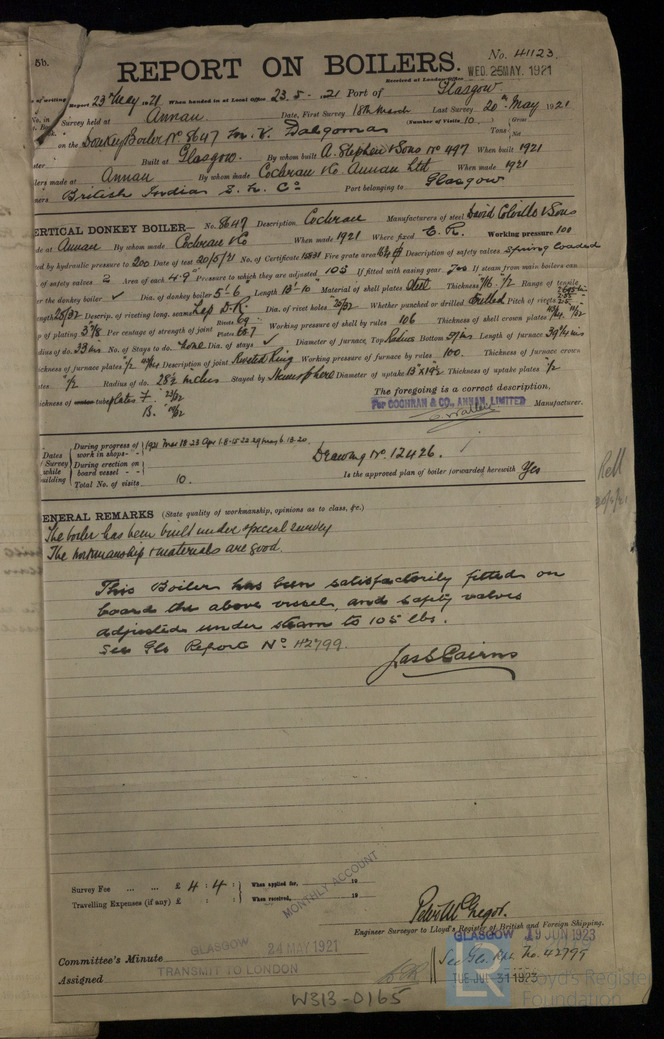 5b.
REPORT ON BOILERS.
No. 41123
Received at London Office WED. 25 MAY. 1921
of writing Report 23rd May 1921 When handed in at Local Office 23.5.1921 Port of Glasgow
No. in Survey held at Annan Date, First Survey 18th March Last Survey 20th May 1921
on the Donkey Boiler No 8647 for M.V. Dalgoma (Number of Visits 10) Tons
Built at Glasgow. By whom built A. Stephen & Sons No 497 When built 1921
made at Annan By whom made Cochran & Co. Annan Ltd When made 1921
British Indian S. N. Co Port belonging to Glasgow
VERTICAL DONKEY BOILER— No. 8647 Description Cochran Manufacturers of steel David Colville & Sons
at Annan By whom made Cochran & Co When made 1921 Where fixed E. R. Working pressure 100
by hydraulic pressure to 200 Date of test 20/5/21 No. of Certificate 15831 Fire grate area Description of safety valves Spring loaded
of safety valves 2 Area of each 4.9" Pressure to which they are adjusted 105 If fitted with easing gear Yes If steam from main boilers can
the donkey boiler ✓ Dia. of donkey boiler 5'. 6" Length 13'. 10 Material of shell plates Steel Thickness 7/16. 1/2 Range of tensile
25/32 Descrip. of riveting long. seams Lap D.R. Dia. of rivet holes 25/32 Whether punched or drilled Drilled Pitch of rivets
of plating 3 7/8 Per centage of strength of joint Rivets 69 Plates 68.7 Working pressure of shell by rules 106 Thickness of shell crown plates
of do. 33 ins No. of Stays to do. None Dia. of stays ✓ Diameter of furnace, Top Radius Bottom Length of furnace 39 1/4 ins
Thickness of furnace plates Description of joint Riveted Ring Working pressure of furnace by rules 100. Thickness of furnace crown
plates 1/2 Radius of do. 28 1/2 inches Stayed by Hemisphere Diameter of uptake 13" x 14 1/2 Thickness of uptake plates 1/2
Thickness of tube plates F. 23/32
B.
The foregoing is a correct description,
For COCHRAN & CO., ANNAN, LIMITED Manufacturer.
Dates of Survey while building
During progress of work in shops - - 1921 Mar 18.23 Apr 1.8.15.22.29 May 6.13.20
During erection on board vessel - -
Total No. of visits 10.
Drawing No. 12426.
Is the approved plan of boiler forwarded herewith Yes
GENERAL REMARKS (State quality of workmanship, opinions as to class, &c.)
The boiler has been built under special survey
The workmanship & materials are good.
This Boiler has been satisfactorily fitted on
board the above vessel, and safety valves
adjusted under steam to 105 lbs.
See Gls Report No. 42799.
Jas S Cairns
Survey Fee ... ... £ 4 : 4 : When applied for, 19
Travelling Expenses (if any) £ : : When received, 19
MONTHLY ACCOUNT
Peter McGregor.
Engineer Surveyor to Lloyd's Register of British and Foreign Shipping.
GLASGOW 19 JUN 1923
Committee's Minute GLASGOW 24 MAY 1921
See Gls. Rpt. No. 42799
Assigned TRANSMIT TO LONDON
TUE. JUL 31 1923
LR Lloyd's Register
Foundation
W313-0165